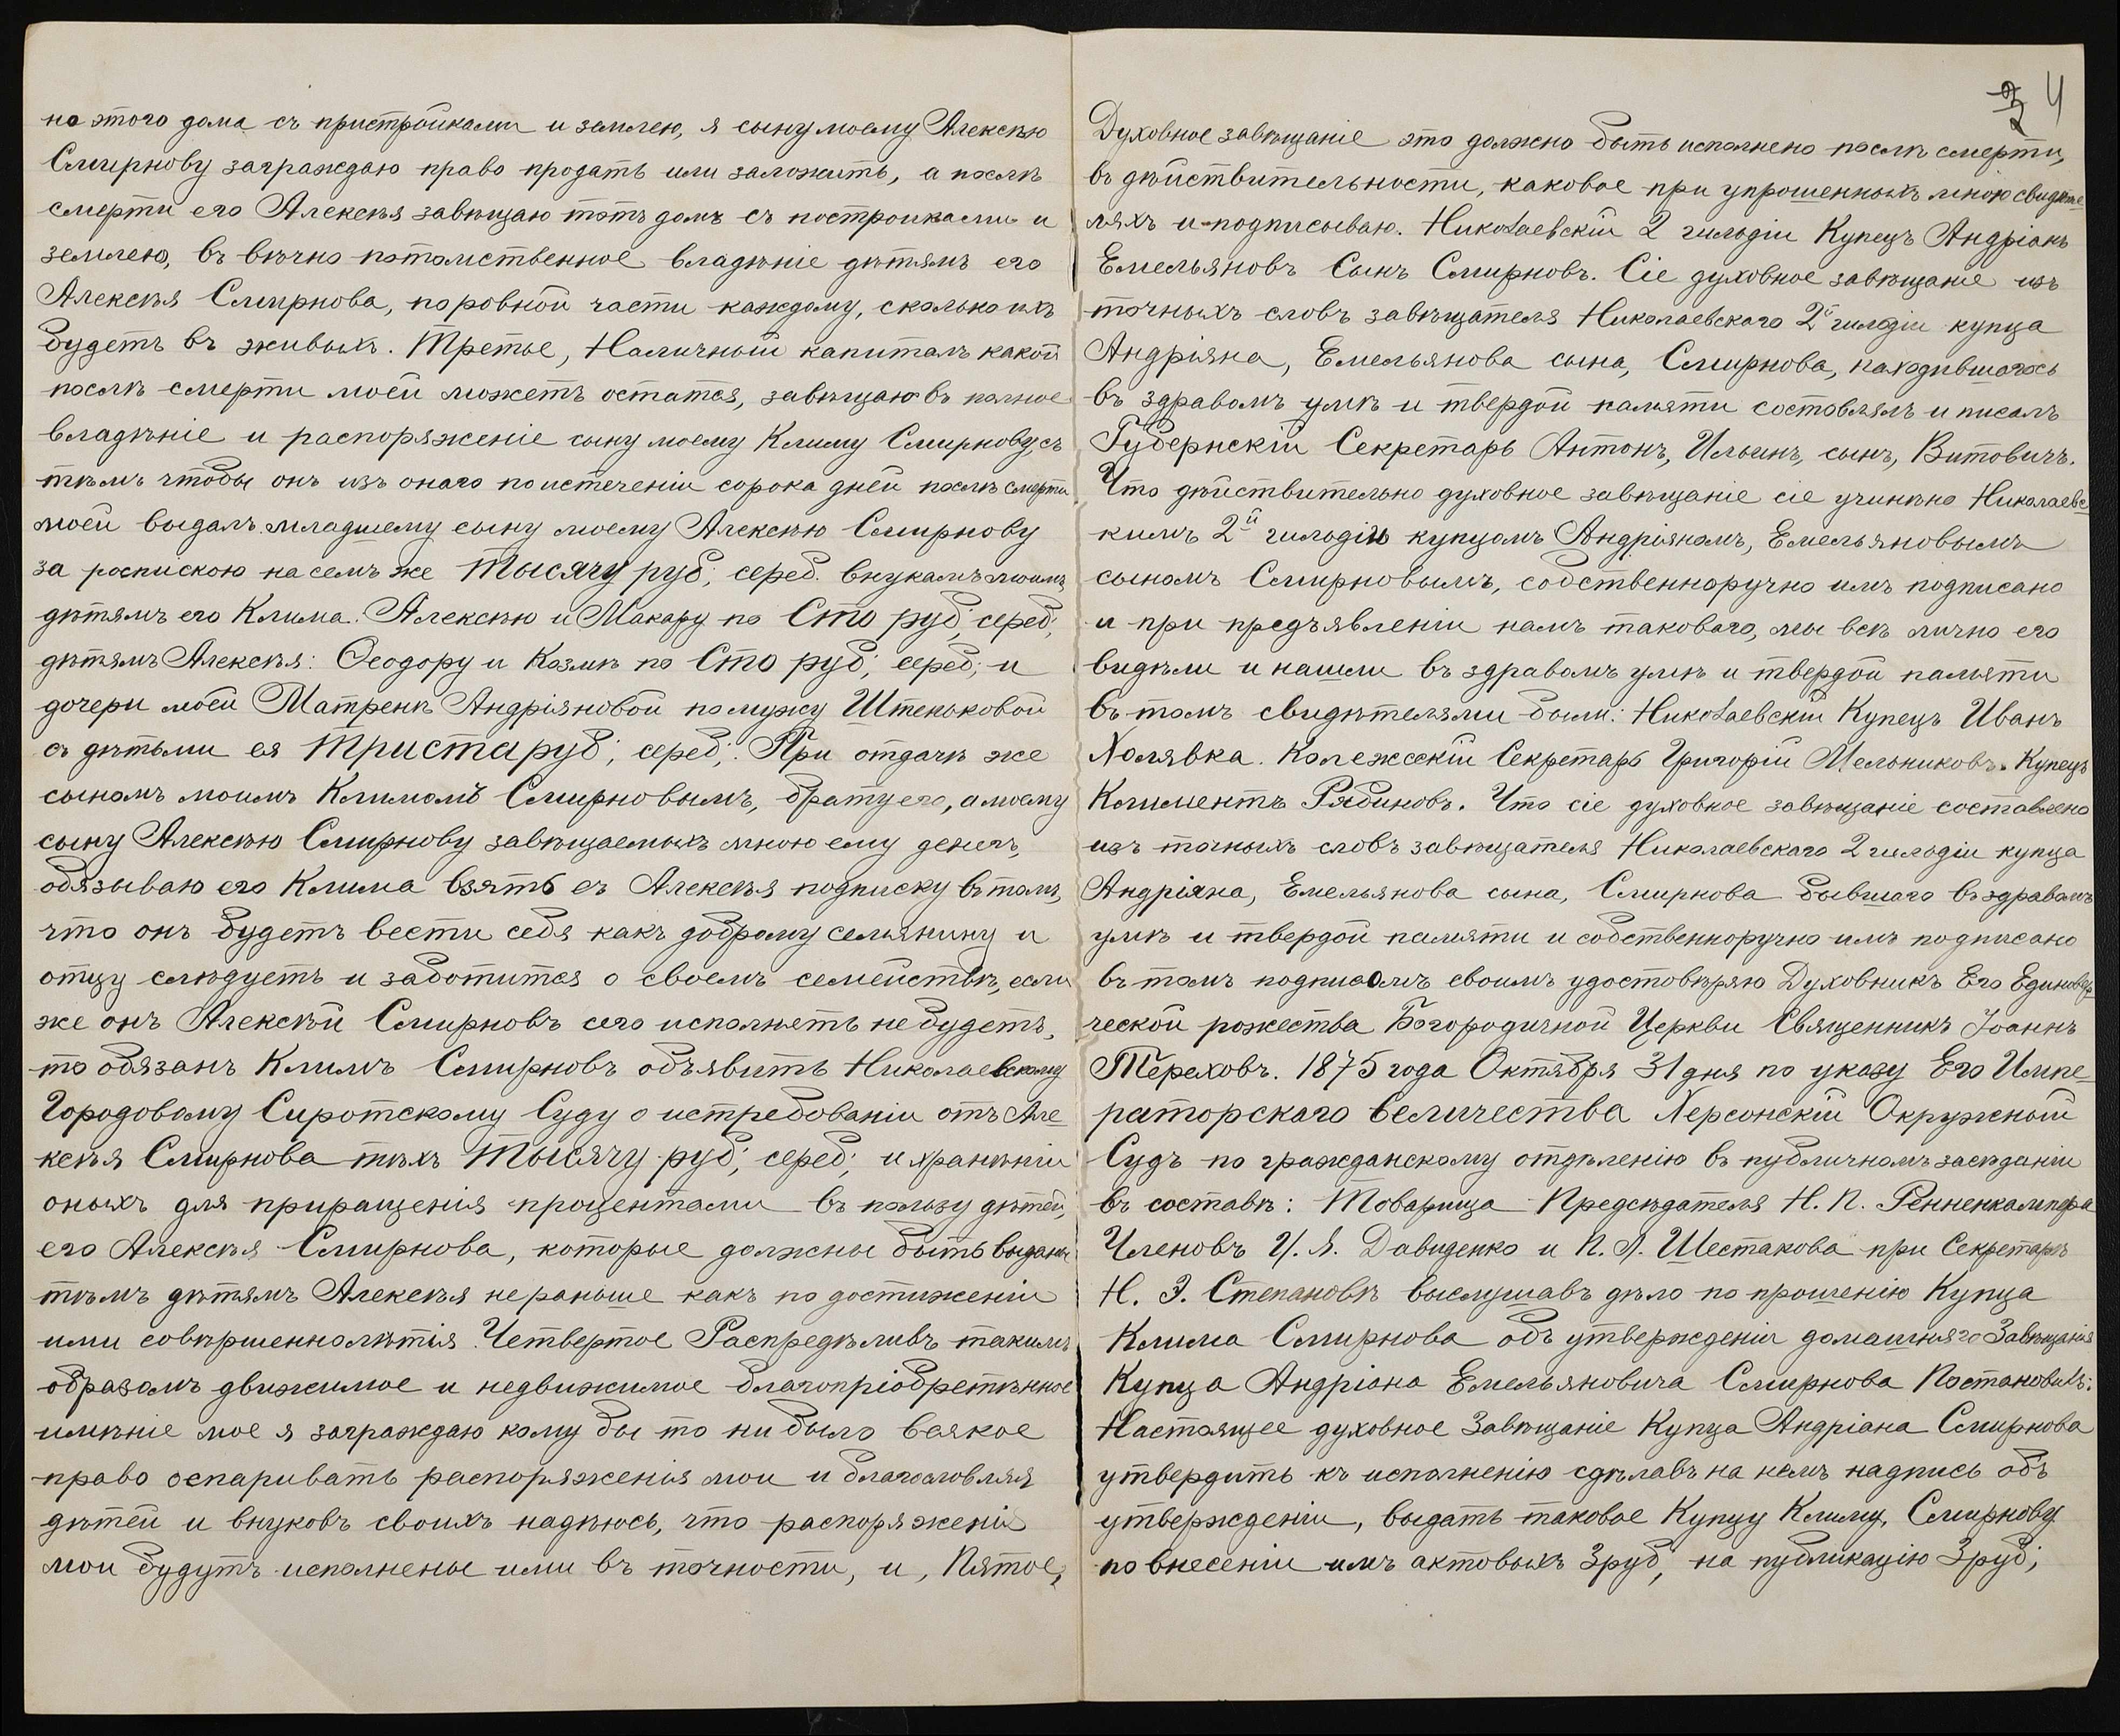 но этого дома съ пристройками и землею, я сыну моему Алексѣю
Смирнову заграждаю право продать или заложить, а послѣ
смерти его Алексѣя завѣщаю тотъ домъ съ постройками и
землею, въ вѣчно потомственное владѣніе дѣтямъ его
Алексѣя Смирнова, по ровной части каждому, сколько ихъ
будетъ въ живыхъ. Третье, Наличный капиталъ какой
послѣ смерти моей можетъ остатся, завѣщаю въ полное
владѣніе и распоряженіе сыну моему Климу Смирнову, съ
тѣмъ чтобы онъ изъ онаго по истеченіи сорока дней послѣ смерти
моей выдалъ младшему сыну моему Алексѣю Смирнову
за роспискою на семъ же Тысячу руб; сереб. внукамъ моимъ
дѣтямъ его Клима: Алексѣю и Макару по Сто руб; сереб;
дѣтямъ Алексѣя: Ѳеодору и Козмѣ по Сто руб; сереб; и
дочери моей Матренѣ Андріяновой по мужу Штеньковой
съ дѣтьми ея Триста руб; сереб; При отдачѣ же
сыномъ моимъ Климомъ Смирновымъ, брату его, а моему
сыну Алексѣю Смирнову завѣщаемыхъ мною ему денегъ,
обязываю его Клима взять съ Алексѣя подписку въ томъ,
что онъ будетъ вести себя какъ доброму семьянину и
отцу слѣдуетъ и заботится о своемъ семействѣ, если
же онъ Алексѣй Смирновъ сего исполнять не будетъ,
то обязанъ Климъ Смирновъ объявить Николаевскому
Городовому Сиротскому Суду о истребованіи отъ Але-
ксѣя Смирнова тѣхъ Тысячу руб; сереб; и храненіи
оныхъ для приращенія процентами въ пользу дѣтей,
его Алексѣя Смирнова, которые должны быть выданы
тѣмъ дѣтямъ Алексѣя не раньше какъ по достиженіи
ими совѣршеннолѣтія. Четвертое Распредѣливъ такимъ
образомъ движимое и недвижимое благопріобретѣнное
имѣніе мое я заграждаю кому бы то ни было всякое
право оспаривать распоряженія мои и благословляя
дѣтей и внуковъ своихъ надѣюсь, что распоряженія
мои будутъ исполнены ими въ точности, и, Пятое,
4
Духовное завѣщаніе это должно быть исполнено послѣ смерти,
въ дѣйствительности, каковое при упрошенныхъ мною свидѣте-
ляхъ и подписываю. Николаевскій 2 гильдіи Купецъ Андріанъ
Емельяновъ Сынъ Смирновъ. Сіе духовное завѣщаніе изъ
точныхъ словъ завѣщателя Николаевскаго 2й гильдіи купца
Андріяна, Емельянова сына, Смирнова, находившагось
въ здравомъ умѣ и твердой памяти составлялъ и писалъ
Губернскій Секретарь Антонъ, Ильинъ, сынъ, Витовичъ.
Что дѣйствительно духовное завѣщаніе сіе учинѣно Николаевс-
кимъ 2й гильдіи купцомъ Андріяномъ, Емельяновымъ
сыномъ Смирновымъ, собственноручно имъ подписано
и при предъявленіи намъ таковаго, мы всѣ лично его
видѣли и нашли въ здравомъ умѣ и твердой памяти
въ томъ свидѣтелями были: Николаевскій Купецъ Иванъ
Холявка. Колежскій Секретарь Григорій Мельниковъ. Купецъ
Климентъ Рябиновъ. Что сіе духовное завѣщаніе составлено
изъ точныхъ словъ завѣщателя Николаевскаго 2 гильдіи купца
Андріяна, Емельянова сына, Смирнова бывшаго въ здравомъ
умѣ и твердой памяти и собственноручно имъ подписано
въ томъ подписомъ своимъ удостовѣряю Духовникъ Его Единовѣр-
ческой рожества Богородичной Церкви Священникъ Іоаннъ
Тереховъ. 1875 года Октября 31 дня по указу Его Импе-
раторскаго величества Херсонскій Окружной
Судъ по гражданскому отдѣленію въ публичномъ засѣданіи
въ составѣ: Товарища Предсѣдателя Н. П. Ренненкампфа
Членовъ И. Я. Давиденко и П. Л. Шестакова при Секретарѣ
Н. Э. Степановѣ выслушавъ дѣло по прошенію Купца
Клима Смирнова объ утвержденіи домашняго Завѣщанія
Купца Андріана Емельяновича Смирнова Постановилъ:
Настоящее духовное Завѣщаніе Купца Андріана Смирнова
утвердить къ исполненію сдѣлавъ на немъ надпись объ
утвержденіи, выдать таковое Купцу Климу, Смирнову
по внесеніи имъ актовыхъ 3 руб; на публикацію 3 руб;